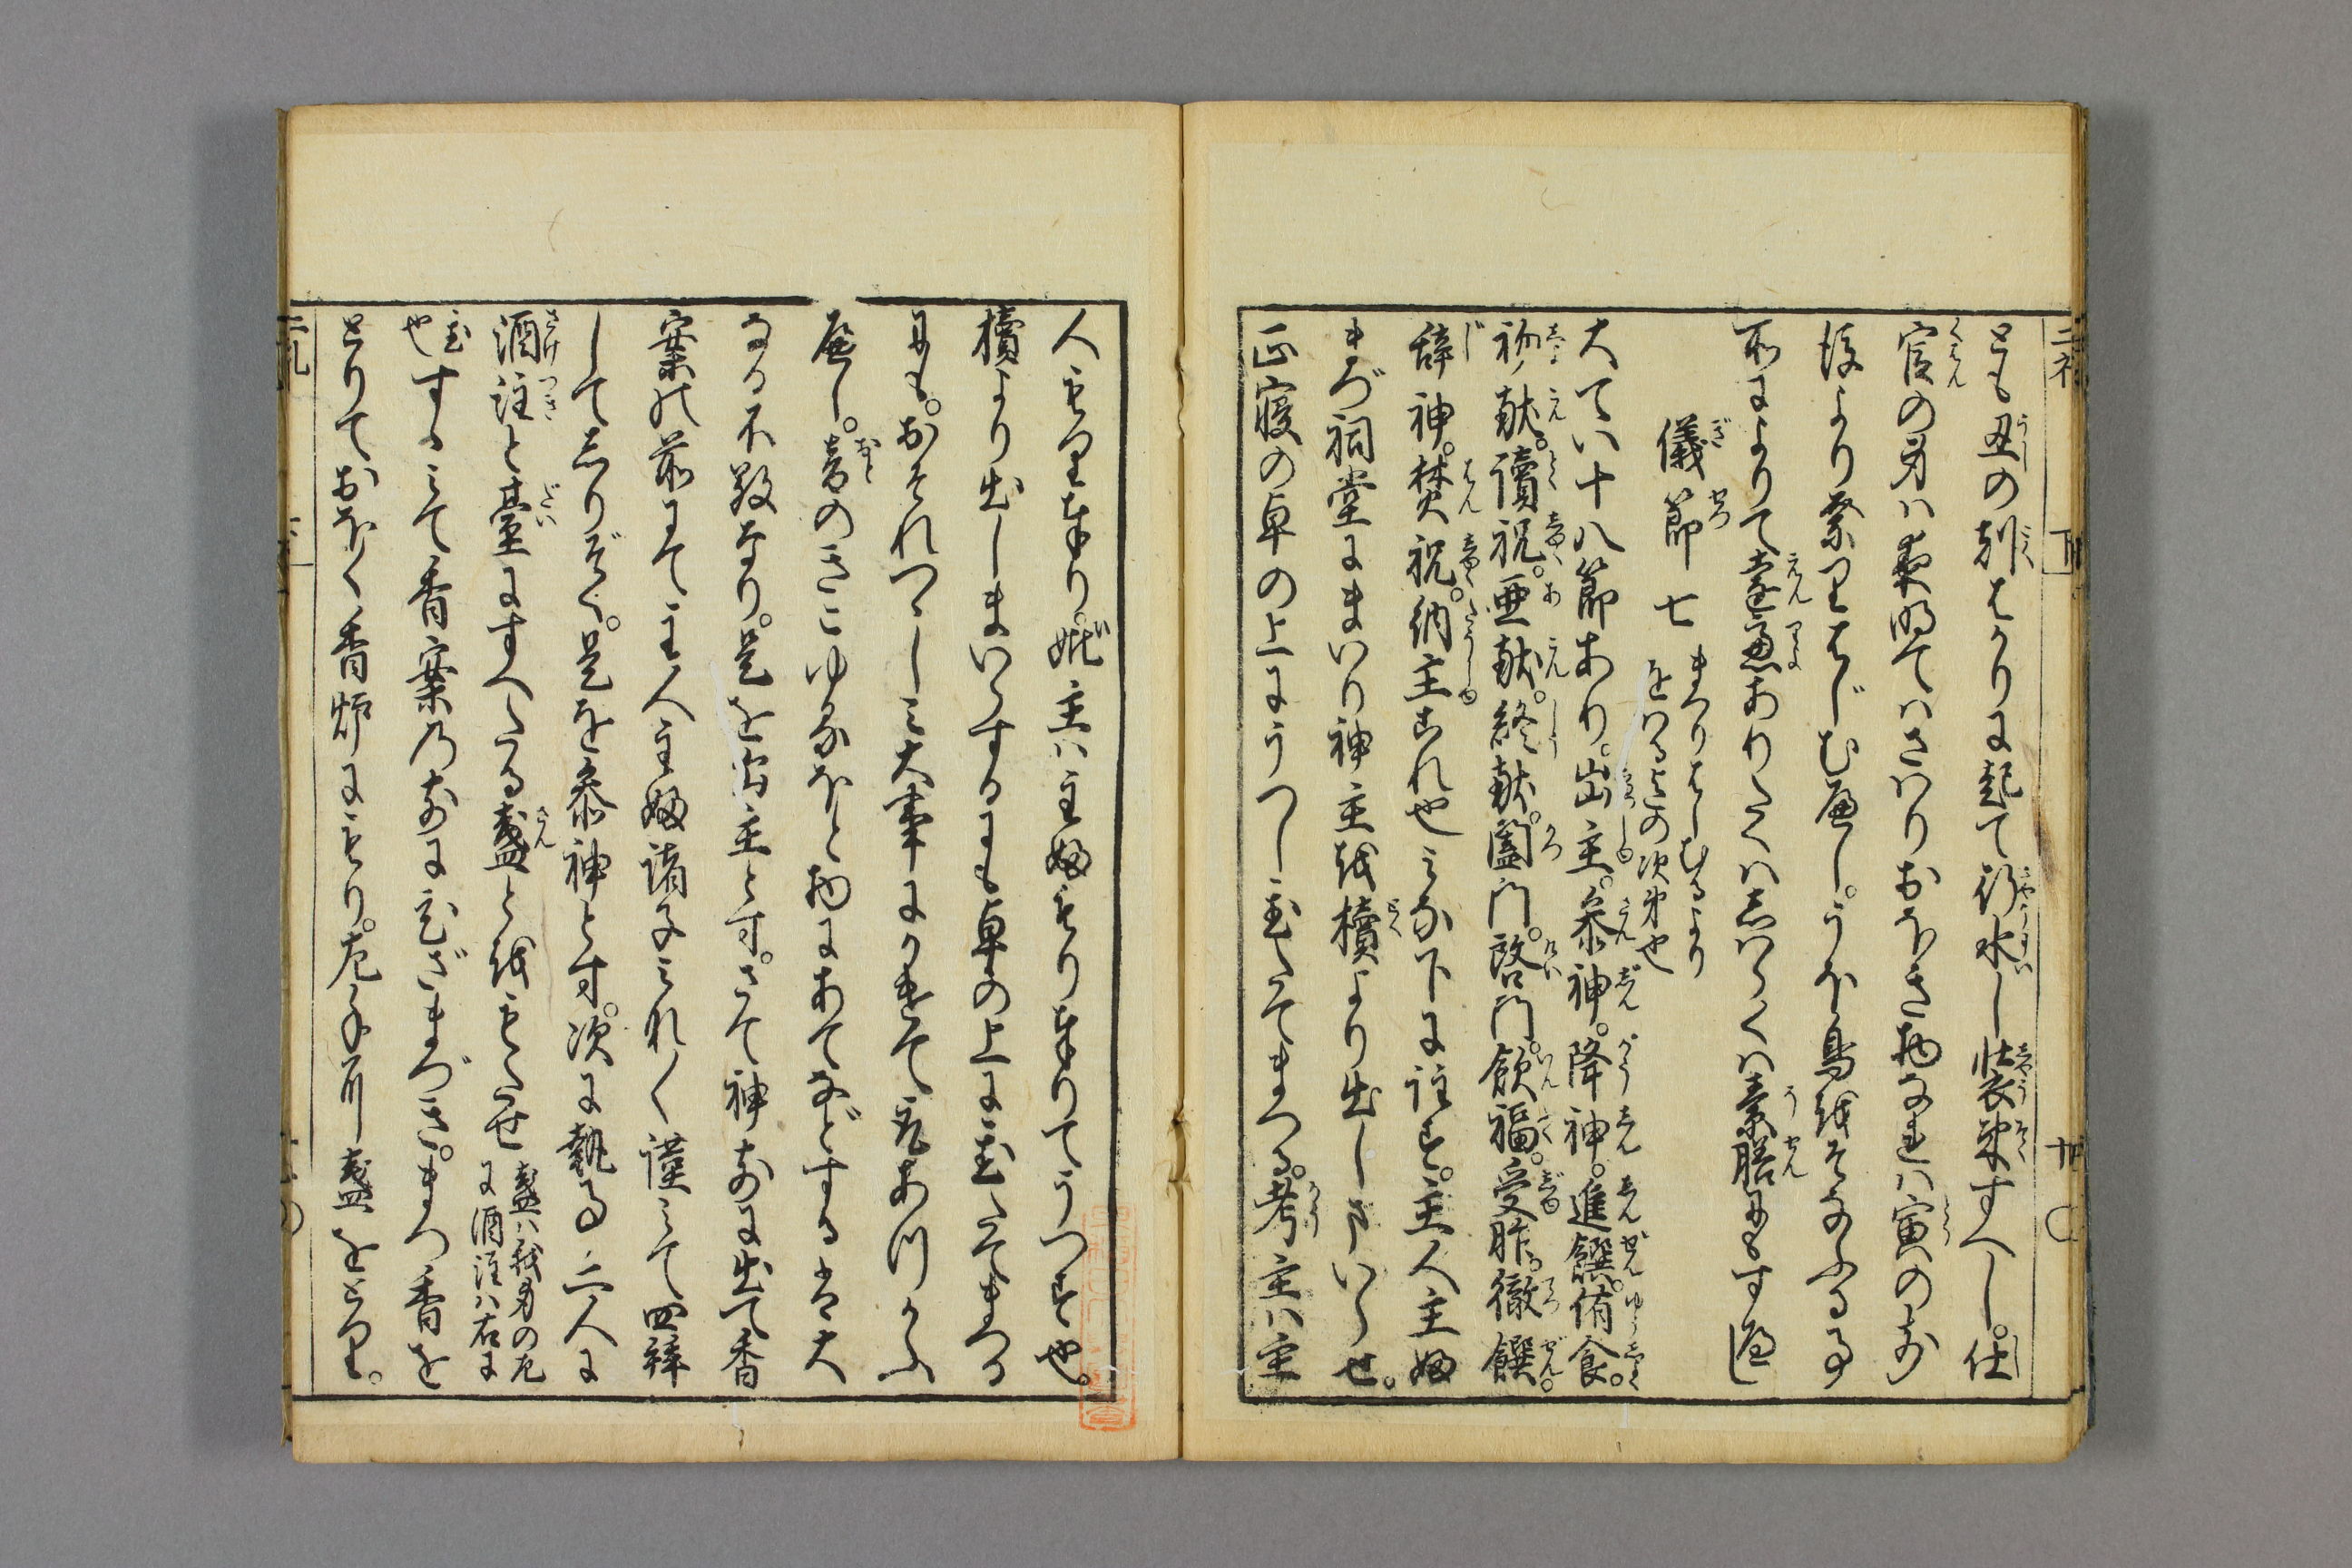 とも丑の刻ばかりに起て行水し裝束すへし。仕
官の身ハ夜明てハさハりおほき物なれハ寅の前
後より祭りはじむべし。うを鳥をそなふる事
所によりて遠慮ありたくハしハらくハ素膳にもすべし
儀節七
まつりはしむるより
をハるまての次第也
大てい十八節あり。出主。参神。降神。進饌。侑食。
初献。讀祝。亜献。終献。闔門。啓門。飲福。受胙。徹饌。
辞神。焚祝。納主これ也みな下に註す。主人主婦
まづ祠堂にまいり神主を櫝より出しまいらせ。
正寝の卓の上にうつしたてまつる。考主ハ主
人とり奉り。妣主ハ主婦とり奉りてうつす也。
櫝より出しまいらするにも卓の上にたてまつる
にも。おそれつゝしミ大事にかけて
べし。音のきこゆるほと物にあてなどするハ大
なる不敬なり。是を出主とす。さて神前に出て香
案の前にて主人主婦諸子それ〳〵謹ミて四拜
してしりぞく。是を参神とす。次に執事二人に
酒注と臺にすへたる盞とをもたせ
盞ハ我身の左
に酒注ハ右に
也すゝミて香案の前にひざまづき。まつ香を
とりておほく香炉にもり。左手に盞をとり。